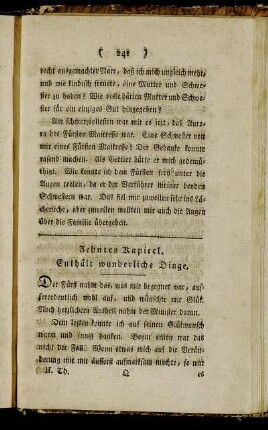 ( 242 )
recht ausgemachter Narr, daß ich mich ungleich mehr,
und wie kindisch freuete, eine Mutter und Schwe-
ster zu haben? Wie viele hätten Mutter und Schwe-
ster für ein einziges Gut hingegeben?
Am schmerzhaftesten war mir es jetzt, daß Auro-
ra des Fürsten Maitresse war. Eine Schwester von
mir eines Fürsten Maitresse? Der Gedanke konnte
rasend machen. Als Gettier hätte er mich gedemü-
thigt. Wie konnte ich dem Fürsten itzt unter die
Augen treten, da er der Verführer meiner beyden
Schwestern war. Das fiel mir zuweilen sehr ins Lä-
cherliche, aber zuweilen wollten mir auch die Augen
über die Familie übergehen.
Zehntes Kapitel.
Enthält wunderliche Dinge.
Der Fürst nahm das, was mir begegnet war, auf-
serordentlich wohl auf, und wünschte mir Glük.
Noch herzlichern Antheil nahm der Minister daran.
Dem lezten konnte ich auf seinen Glükwunsch
warm und innig danken. Beym ersten war das
nicht der Fall. Wenn etwas mich auf die Verän-
derung mit mir äußerst aufmerksam machte, so war
II. Th. Q es